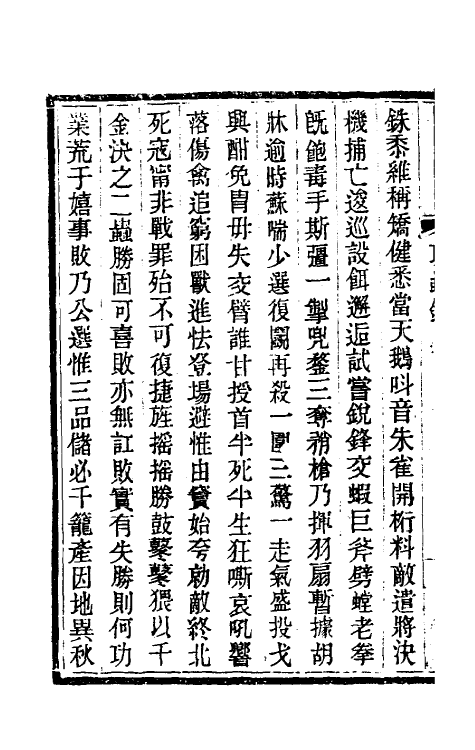 銖黍維稱矯健悉當天鵝呌音朱雀開桁料敵遣將決
機捕亡逡巡設餌邂逅試嘗銳鋒交蝦巨斧劈螳老拳
旣飽毒手斯彊一掣兜鍪三奪矟槍乃揮羽扇暫據胡
牀逾時蘇喘少選復鬭再殺一圍三驚一走氣盛投戈
興酣免冑毋失交臂誰甘授首半死半生狂嘶哀吼響
落傷禽追窮困獸進怯登場避惟由竇始夸勍敵終北
死寇甯非戰罪殆不可復捷旌摇摇勝鼓鼕鼕猥以千
金決之二蟲勝固可喜敗亦無訌敗實有失勝則何功
業荒于嬉事敗乃公選惟三品儲必千籠產因地異秋